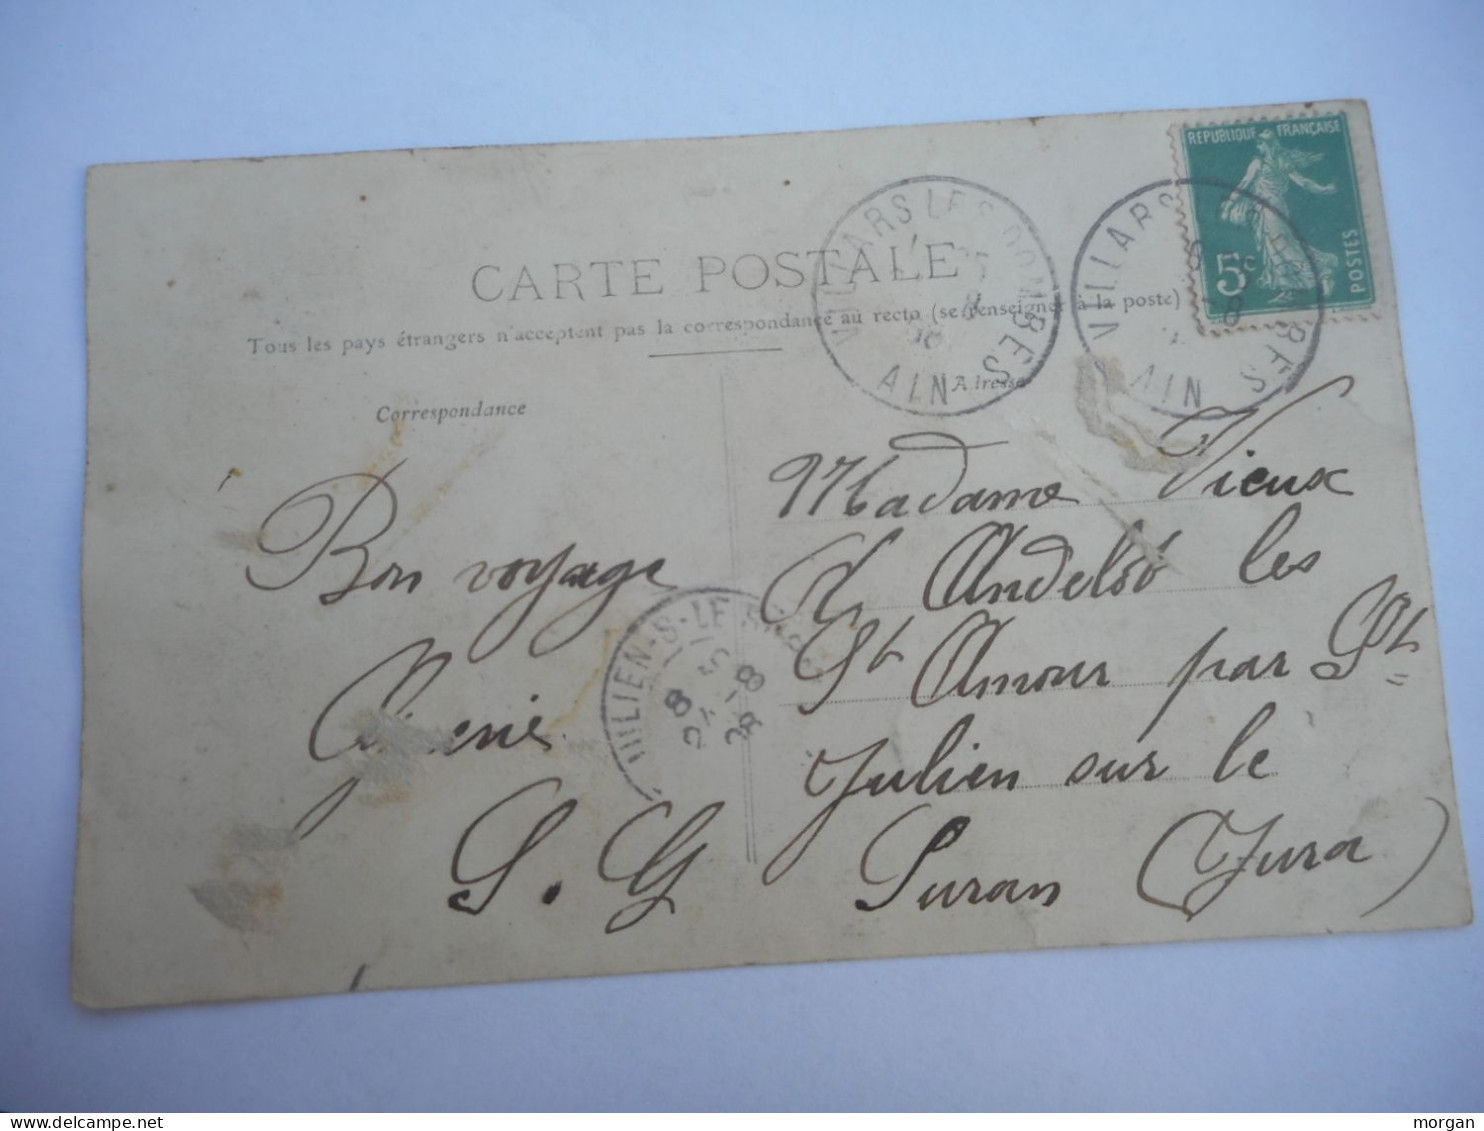 REPUBLIQUE FRANÇAISE
5c
POSTES
VILLARS LES DOMBES
AIN
VILLARS LES DOMBES
AIN
CARTE POSTALE
Tous les pays étrangers n'acceptent pas la correspondance au recto (se renseigner à la poste)
Correspondance
Adresse
Bon voyage
S. G
JULIEN-S-LE SURAN
Madame Vieux
Andelot les
St Amour par St
Julien sur le
Suran (Jura)
morgan